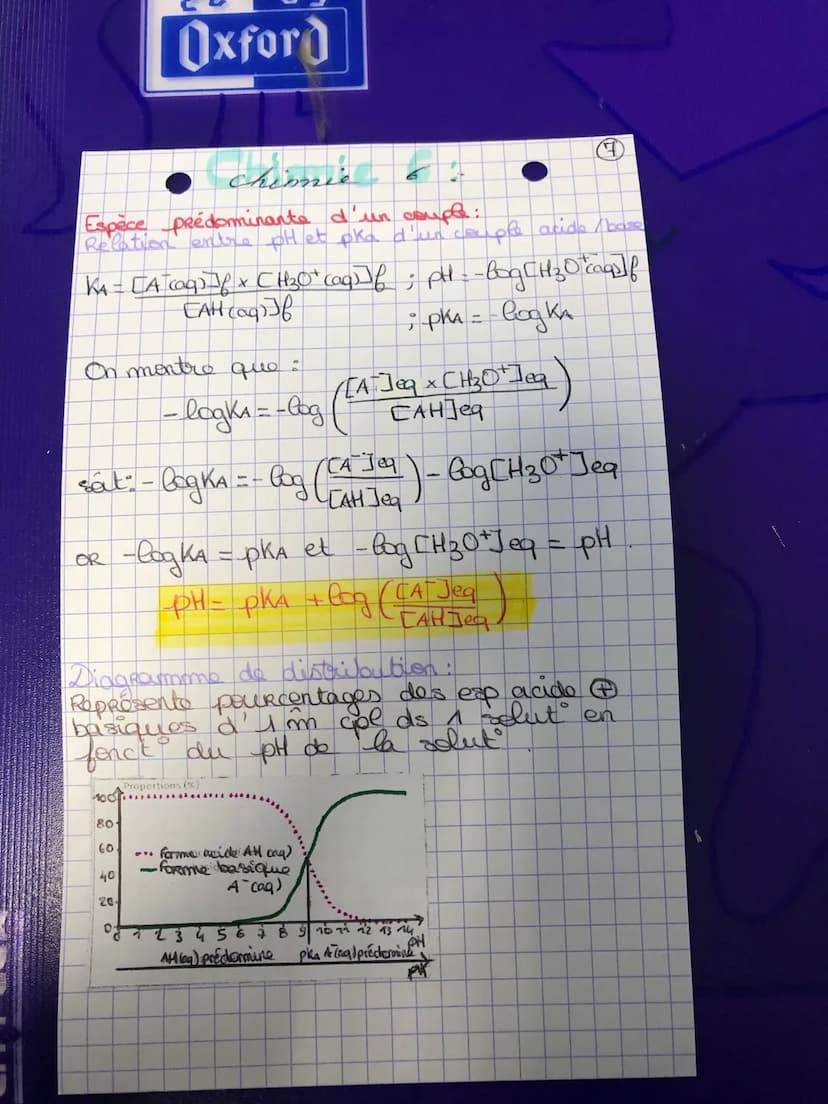 Oxford
7
Chimie 6 :
chimie 6
Espèce prédominante d'un couple :
Relation entre pH et pKa d'un couple acide/base
KA = [A⁻(aq)]f × [H3O⁺(aq)]f ; pH = -log[H3O⁺(aq)]f
[AH(aq)]f ; pKA = -logKA
On montre que :
-logKA = -log([A⁻]eq × [H3O⁺]eq / [AH]eq)
soit: -logKA = -log([A⁻]eq / [AH]eq) - log[H3O⁺]eq
OR -logKA = pKA et -log[H3O⁺]eq = pH.
pH = pKA + log([A⁻]eq / [AH]eq)
Diagramme de distribution :
Représente pourcentages des esp acide ⊕
basiques d'1 m̂ cpl ds 1 solut° en
fonct° du pH de la solut°.
Proportions (%)
100
80
60
40
20
0
forme acide AH(aq)
forme basique
A⁻(aq)
0 1 2 3 4 5 6 7 8 9 10 11 12 13 14
pH
AH(aq) prédomine pKa A⁻(aq) prédomine
pH